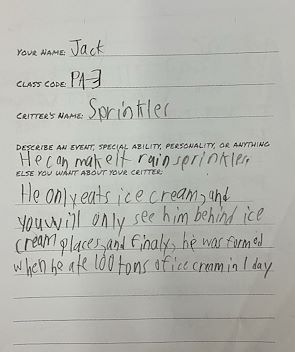 YOUR NAME: Jack
CLASS CODE: PA-3
CRITTER'S NAME: Sprinkles
DESCRIBE AN EVENT, SPECIAL ABILITY, PERSONALITY, OR ANYTHING
He can make It rain sprinkles.
ELSE YOU WANT ABOUT YOUR CRITTER:
He only eats ice cream, and
you will only see him behind ice
cream places, and finaly, he was formed
when he ate 100 tons of ice cream in 1 day